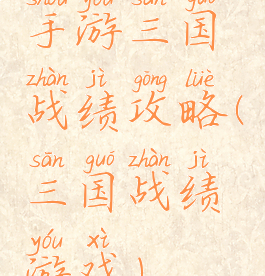 shǒu yóu sān guó
手游三国
zhàn jì gōng lüè
战绩攻略(
sān guó zhàn jì
三国战绩
yóu xì
游戏)